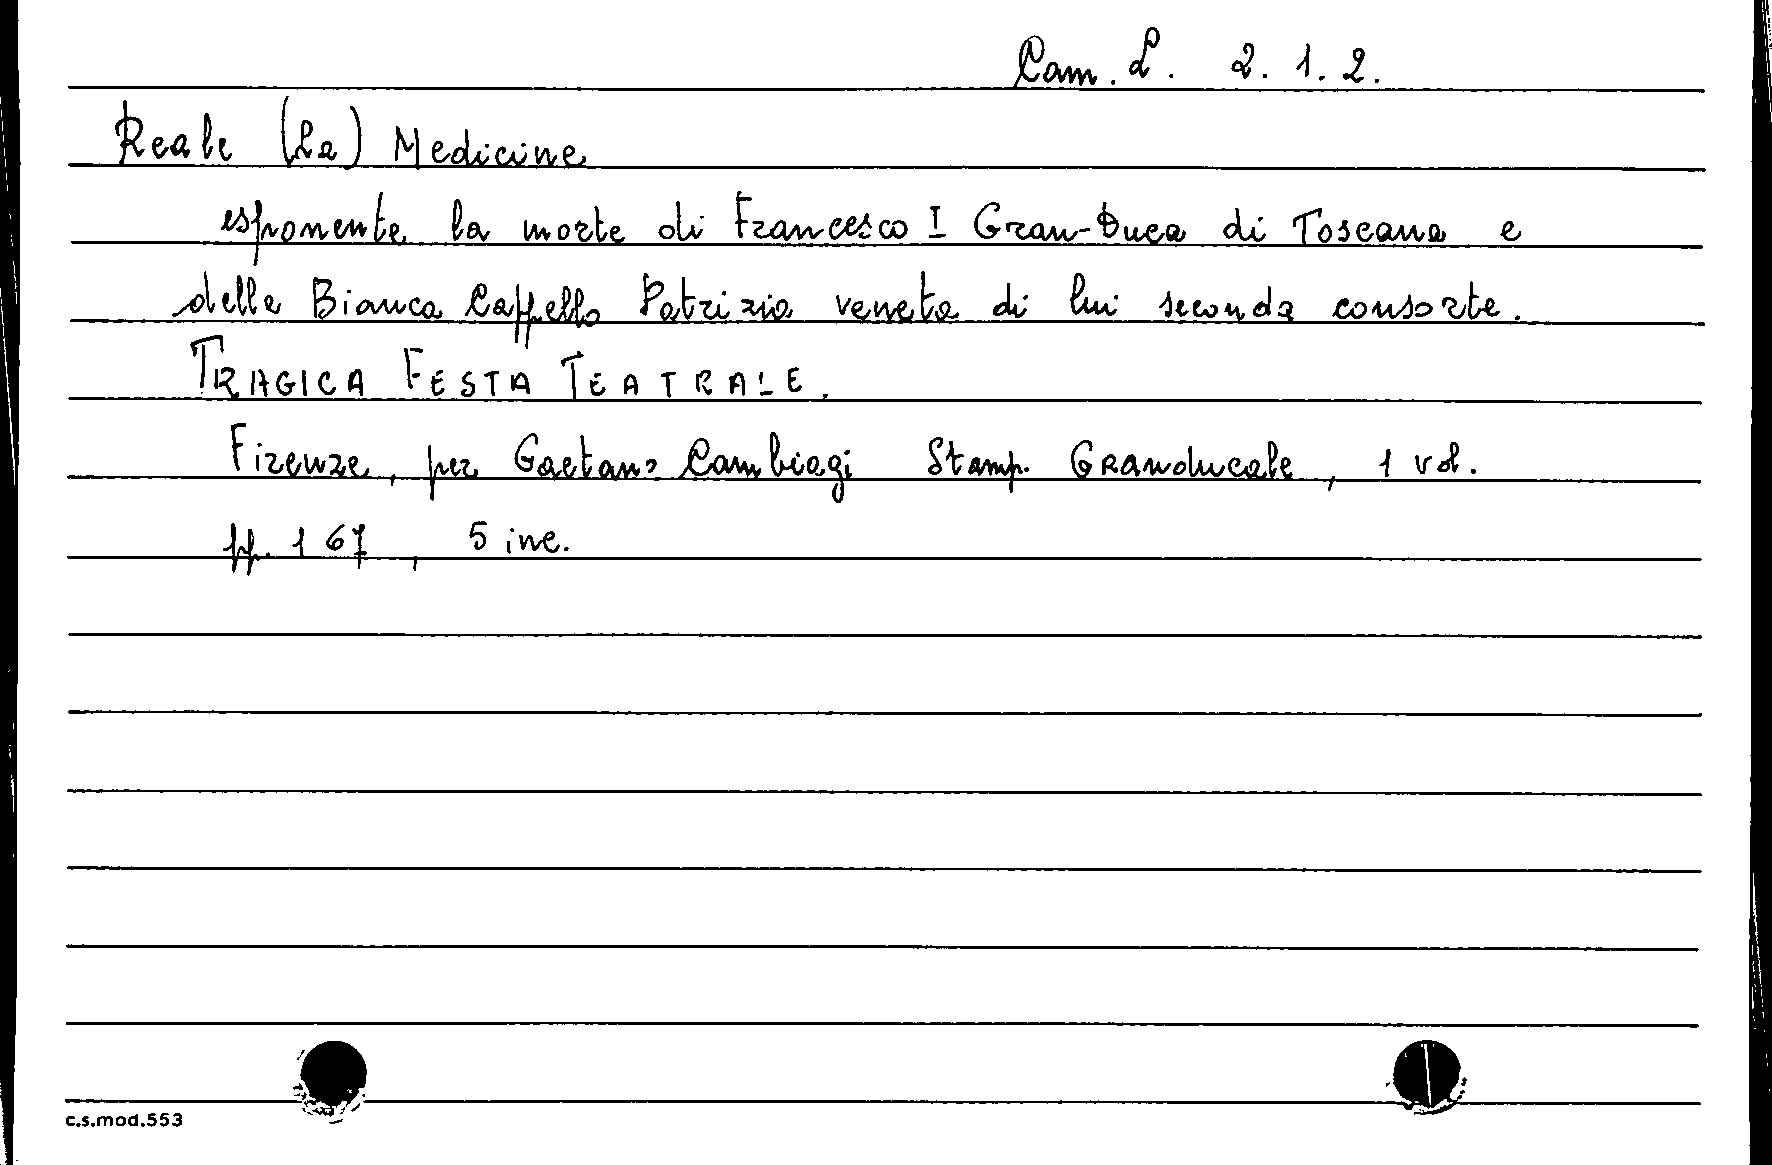 Cam. L. 2. 1. 2.
Reale (La) Medicine
esponente la morte di Francesco I Gran-Duca di Toscana e
della Bianca Cappello Patrizia veneta di lui seconda consorte.
TRAGICA FESTA TEATRALE.
Firenze, per Gaetano Cambiagi Stamp. GRANducale, 1 vol.
pp. 167, 5 inc.
c.s.mod.553